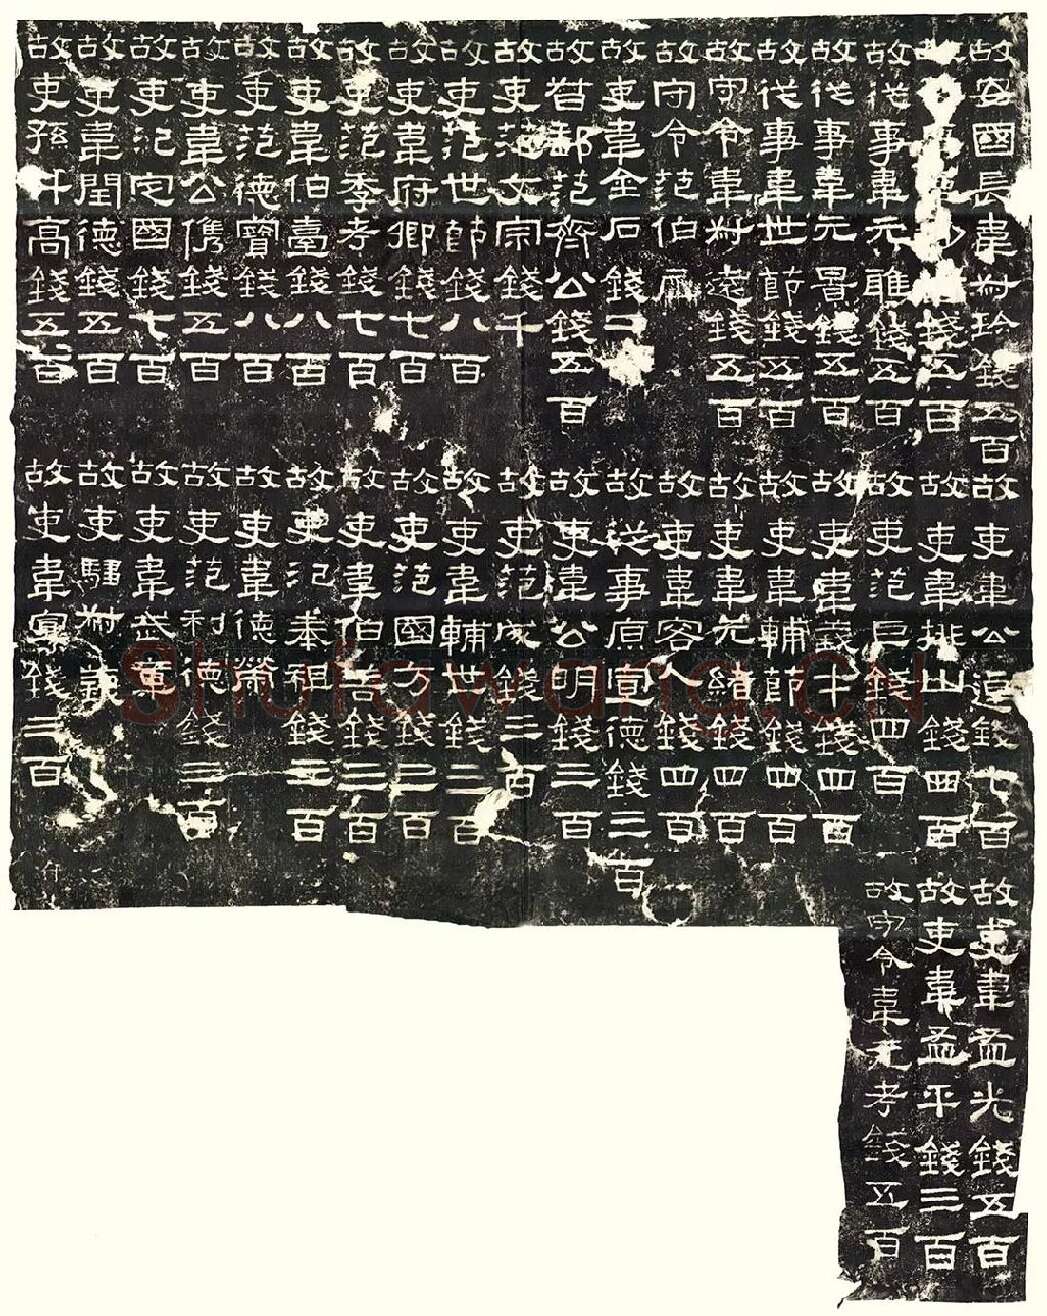 故安國長韋叔珍錢五百
故從事韋錢五百
故從事韋元雅錢五百
故從事韋元景錢五百
故從事韋世節錢五百
故守令韋叔遠錢五百
故守令范伯犀
故吏韋金石錢二百
故督郵范齊公錢五百
故吏范文宗錢千
故吏范世節錢八百
故吏韋府卿錢七百
故吏范季考錢七百
故吏韋伯臺錢八百
故吏范德寶錢八百
故吏韋公儁錢五百
故吏氾定國錢七百
故吏韋閏德錢五百
故吏孫升高錢五百
故吏韋公逴錢七百
故吏韋排山錢四百
故吏范巨錢四百
故吏韋義才錢四百
故吏韋輔節錢四百
故吏韋元緒錢四百
故吏韋容人錢四百
故從事原宣德錢三百
故吏韋公明錢三百
故吏范成錢三百
故吏韋輔世錢三百
故吏范國方錢三百
故吏韋伯善錢三百
故吏氾奉祖錢三百
故吏韋德榮
故吏范利德錢三百
故吏韋武章
故吏騶叔義
故吏韋宣錢三百
故吏韋孟光錢五百
故吏韋孟平錢三百
故守令韋元考錢五百
Shufawang.CN